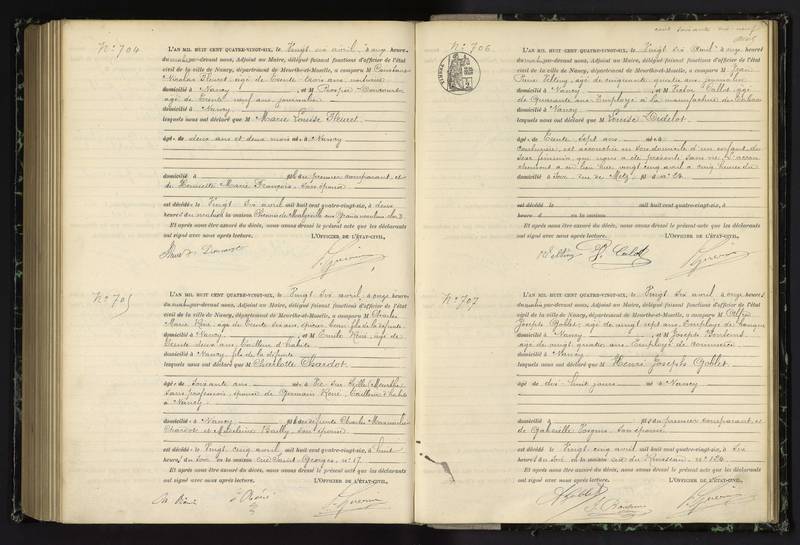 N° 704
L'AN MIL HUIT CENT QUATRE-VINGT-SIX, le Vingt six avril, à onze heures
du matin par-devant nous, Adjoint au Maire, délégué faisant fonctions d'officier de l'état
civil de la ville de Nancy, département de Meurthe-et-Moselle, a comparu M Constant
Nicolas Fleuret, âgé de trente trois ans,
domicilié à Nancy et M Prosper
âgé de trente neuf ans journalier
domicilié à Nancy
lesquels nous ont déclaré que M Marie Louise Fleuret
âgé e de deux ans et deux mois né e à Nancy
domicilié à fils du premier comparant et
de Henriette Marie François, son épouse
est décédé e le Vingt six avril mil huit cent quatre-vingt-six, à deux
heures du matin en la maison Chemin de Malzéville aux Grands moulins
Et après nous être assuré du décès, nous avons dressé le présent acte que les déclarants
ont signé avec nous après lecture. L'OFFICIER DE L'ÉTAT-CIVIL,
N° 705
L'AN MIL HUIT CENT QUATRE-VINGT-SIX, le Vingt six avril, à onze heures
du matin par-devant nous, Adjoint au Maire, délégué faisant fonctions d'officier de l'état
civil de la ville de Nancy, département de Meurthe-et-Moselle, a comparu M Charles
Marie René, âgé de trente six ans, épicier, beau fils de la défunte
domicilié à Nancy et M Emile René, âgé de
trente deux ans, tailleur d'habits
domicilié à Nancy, fils de la défunte
lesquels nous ont déclaré que M Charlotte Chardot
âgé e de soixante ans né e à
sans profession, épouse de Germain René, tailleur d'habits
à Nancy
domicilié e à Nancy fille des défunts Charles Maximilien
Chardot et Madeleine Bailly, son épouse
est décédé e le Vingt cinq avril mil huit cent quatre-vingt-six, à huit
heures du soir en la maison rue Saint Georges, n° 17
Et après nous être assuré du décès, nous avons dressé le présent acte que les déclarants
ont signé avec nous après lecture. L'OFFICIER DE L'ÉTAT-CIVIL,
Ch René
cent soixante dix neuf
N° 706
L'AN MIL HUIT CENT QUATRE-VINGT-SIX, le Vingt six Avril à onze heures
du matin par-devant nous, Adjoint au Maire, délégué faisant fonctions d'officier de l'état
civil de la ville de Nancy, département de Meurthe-et-Moselle, a comparu M Jean
domicilié à Nancy et M Victor Callot, âgé
de quarante ans, Employé à la manufacture de tabacs
domicilié à Nancy
lesquels nous ont déclaré que M Louise Didelot
âgé e de trente sept ans né e à
couturière, est accouchée en son domicile d'un enfant du
sexe féminin, qui nous a été présenté sans vie. L'accou-
chement a eu lieu hier vingt cinq avril à cinq heures du
domicilié à soir, rue de Metz, n° 24
est décédé le mil huit cent quatre-vingt-six, à
heures d en la maison
Et après nous être assuré du décès, nous avons dressé le présent acte que les déclarants
ont signé avec nous après lecture. L'OFFICIER DE L'ÉTAT-CIVIL,
N° 707
L'AN MIL HUIT CENT QUATRE-VINGT-SIX, le Vingt six avril, à onze heures
du matin par-devant nous, Adjoint au Maire, délégué faisant fonctions d'officier de l'état
civil de la ville de Nancy, département de Meurthe-et-Moselle, a comparu M Alfred
Joseph Goblet, âgé de vingt sept ans, Employé de banque
domicilié à Nancy et M Joseph
âgé de vingt quatre ans, Employé de commerce
domicilié à Nancy
lesquels nous ont déclaré que M Henri Joseph Goblet
âgé de dix-huit jours né à Nancy
domicilié à fils du premier comparant et
de Gabrielle son épouse
est décédé le Vingt cinq avril mil huit cent quatre-vingt-six, à six
heures du soir en la maison rue du Ruisseau n°
Et après nous être assuré du décès, nous avons dressé le présent acte que les déclarants
ont signé avec nous après lecture. L'OFFICIER DE L'ÉTAT-CIVIL,